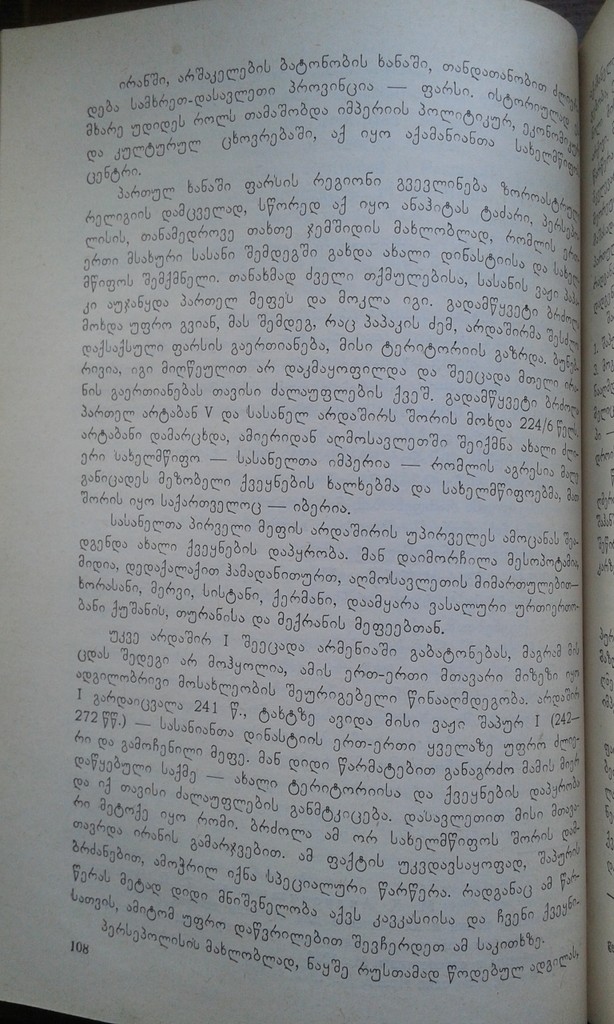 ირანში, არშაკელების ბატონობის ხანაში, თანდათანობით ძლიერ-
დება სამხრეთ-დასავლეთი პროვინცია — ფარსი. ისტორიულად ეს
მხარე უდიდეს როლს თამაშობდა იმპერიის პოლიტიკურ, ეკონომიკურ
და კულტურულ ცხოვრებაში, აქ იყო აქამანიანთა სახელმწიფოს
ცენტრი.
პართულ ხანაში ფარსის რეგიონი გვევლინება ზოროასტრულ
რელიგიის დამცველად, სწორედ აქ იყო ანაჰიტას ტაძარი, პერსეპო-
ლისის, თანამედროვე თახთე ჯემშიდის მახლობლად, რომლის ერთ-
ერთი მსახური სასანი შემდეგში გახდა ახალი დინასტიისა და სახელ-
მწიფოს შემქმნელი. თანახმად ძველი თქმულებისა, სასანის ვაჟი პაპა-
კი აუჯანყდა პართელ მეფეს და მოკლა იგი. გადამწყვეტი ბრძოლა
მოხდა უფრო გვიან, მას შემდეგ, რაც პაპაკის ძემ, არდაშირმა შესძლო
დაქსაქსული ფარსის გაერთიანება, მისი ტერიტორიის გაზრდა. ბუნებ-
რივია, იგი მიღწეულით არ დაკმაყოფილდა და შეეცადა მთელი ირა-
ნის გაერთიანებას თავისი ძალაუფლების ქვეშ. გადამწყვეტი ბრძოლა
პართელ არტაბან V და სასანელ არდაშირს შორის მოხდა 224/6 წელს.
არტაბანი დამარცხდა, ამიერიდან აღმოსავლეთში შეიქმნა ახალი ძლი-
ერი სახელმწიფო — სასანელთა იმპერია — რომლის აგრესია მალე
განიცადეს მეზობელი ქვეყნების ხალხებმა და სახელმწიფოებმა, მათ
შორის იყო საქართველოც — იბერია.
სასანელთა პირველი მეფის არდაშირის უპირველეს ამოცანას შეა-
დგენდა ახალი ქვეყნების დაპყრობა. მან დაიმორჩილა მესოპოტამია,
მიდია, დედაქალაქით ჰამადანითურთ, აღმოსავლეთის მიმართულებით—
ხორასანი, მერვი, სისტანი, ქერმანი, დაამყარა ვასალური ურთიერთო-
ბანი ქუშანის, თურანისა და მექრანის მეფეებთან.
უკვე არდაშირ I შეეცადა არმენიაში გაბატონებას, მაგრამ მის
ცდას შედეგი არ მოჰყოლია, ამის ერთ-ერთი მთავარი მიზეზი იყო
ადგილობრივი მოსახლეობის შეურიგებელი წინააღმდეგობა. არდაშირ
I გარდაიცვალა 241 წ., ტახტზე ავიდა მისი ვაჟი შაპურ I (242—
272 წწ.) — სასანიანთა დინასტიის ერთ-ერთი ყველაზე უფრო ძლიე-
რი და გამოჩენილი მეფე. მან დიდი წარმატებით განაგრძო მამის მიერ
დაწყებული საქმე — ახალი ტერიტორიისა და ქვეყნების დაპყრობა
და იქ თავისი ძალაუფლების განმტკიცება. დასავლეთით მისი მთავა-
რი მეტოქე იყო რომი. ბრძოლა ამ ორ სახელმწიფოს შორის დამ-
თავრდა ირანის გამარჯვებით. ამ ფაქტის უკვდავსაყოფად, შაპურის
ბრძანებით, ამოჭრილ იქნა სპეციალური წარწერა. რადგანაც ამ წარ-
წერას მეტად დიდი მნიშვნელობა აქვს კავკასიისა და ჩვენი ქვეყნი-
სათვის, ამიტომ უფრო დაწვრილებით შევჩერდეთ ამ საკითხზე.
პერსეპოლისის მახლობლად, ნაყშე რუსთამად წოდებულ ადგილას,
108